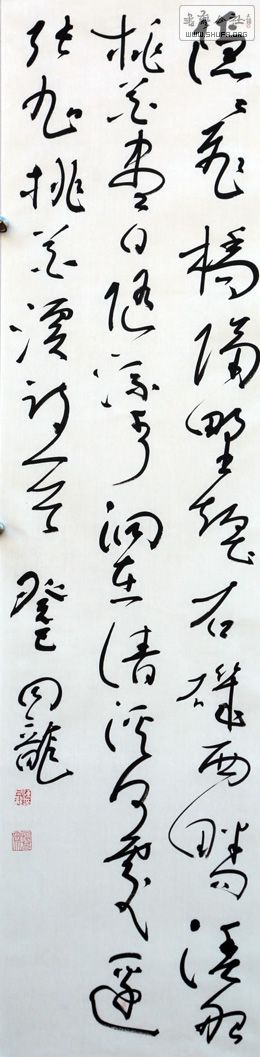 隱〻飛橋隔野煙石磯西畔問漁船
桃花盡日隨流水洞在清溪何處邊
張旭桃花溪詩一首 癸巳 龍
WWW.SHUFA.ORG